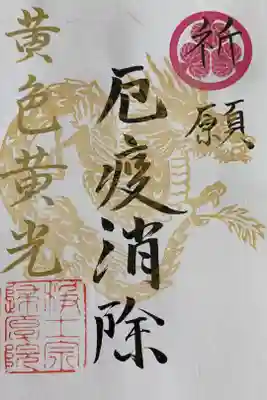 祈願
厄疫消除
黄色黄光
浄土宗
歸厚院